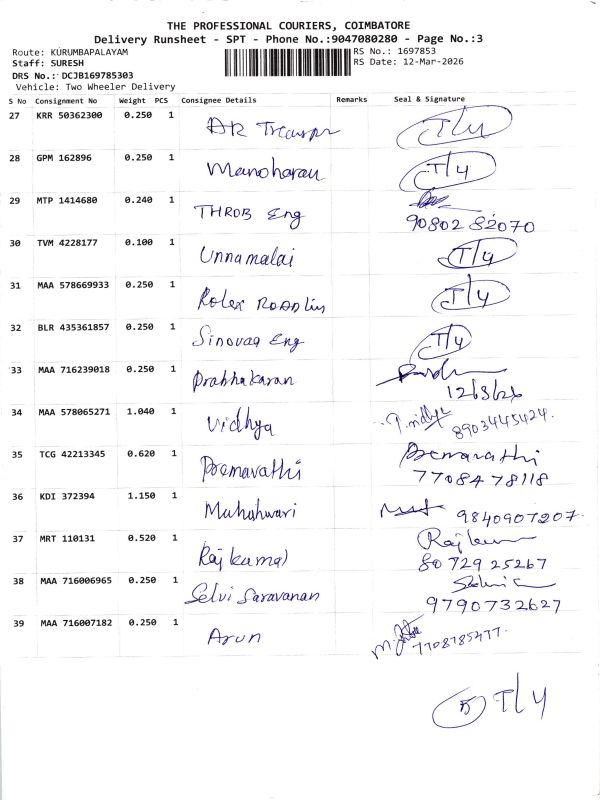 THE PROFESSIONAL COURIERS, COIMBATORE
Delivery Runsheet - SPT - Phone No.:9047080280 - Page No.:3
Route: KURUMBAPALAYAM
RS No.: 1697853
Staff: SURESH
RS Date: 12-Mar-2026
DRS No.: DCJB169785303
Vehicle: Two Wheeler Delivery
S No Consignment No Weight PCS Consignee Details Remarks Seal & Signature
27 KRR 50362300 0.250 1 AR T/4
28 GPM 162896 0.250 1 Manoharan T/4
29 MTP 1414680 0.240 1 THROB Eng
90802 82070
30 TVM 4228177 0.100 1 Unnamalai T/4
31 MAA 578669933 0.250 1 Rolex T/4
32 BLR 435361857 0.250 1 Sinovaq Eng T/4
33 MAA 716239018 0.250 1 Prabhakaran
12/3/26
34 MAA 578065271 1.040 1 Vidhya P. vidhya
8903445424.
35 TCG 42213345 0.620 1 Premavathi Premavathi
7708478118
36 KDI 372394 1.150 1 Muhahwari 9840907207.
37 MRT 110131 0.520 1 Rajkamal Rajkum
80729 25267
38 MAA 716006965 0.250 1 Selvi Saravanan
9790732627
39 MAA 716007182 0.250 1 Arun
7708785477.
5 T/4